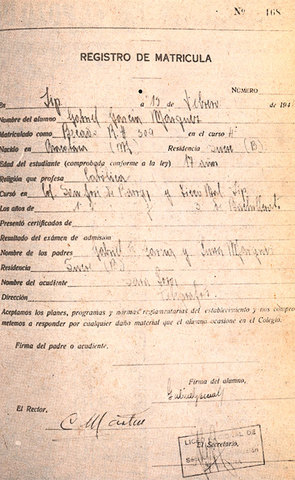 No 168
REGISTRO DE MATRICULA
NÚMERO
En Zip a 13 Febrero de 194
Nombre del alumno Gabriel García Márquez
Matriculado como Becado R. # 309 en el curso 4º
Nacido en (M) Residencia Sucre (B)
Edad del estudiante (comprobada conforme a la ley) 17 años
Religión que profesa Católica
Cursó en Col. San José de B/quilla y Liceo Nal. Zip
Los años de 1º 3º de Bachillerato
Presentó certificados de
Resultado del exámen de admisión
Nombre de los padres Gabriel E. García y Luisa Márquez
Residencia Sucre (B)
Nombre del acudiente Sara
Dirección
Aceptamos los planes, programas y normas reglamentarias del establecimiento y nos comprometemos a responder por cualquier daño material que el alumno ocasione en el Colegio.
Firma del padre o acudiente.
Firma del alumno,
El Rector,
El Secretario,
LICEO DE